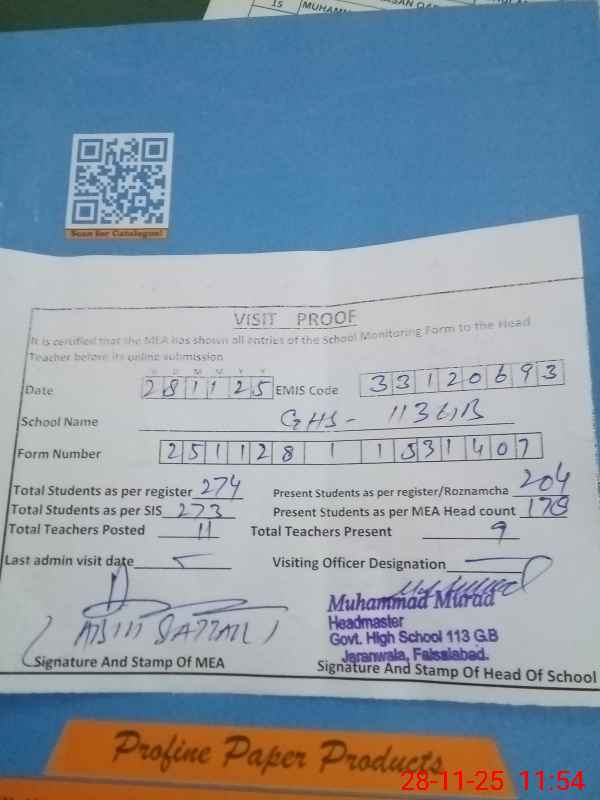 15 MUHAMM
Scan for Catalogue!
VISIT PROOF
It is certified that the MEA has shown all entries of the School Monitoring Form to the Head
Teacher before its online submission
D D M M Y Y
Date 281125 EMIS Code 33120693
School Name GHS - 113 GB
Form Number 251128 1 1531407
Total Students as per register 274 Present Students as per register/Roznamcha 204
Total Students as per SIS 273 Present Students as per MEA Head count 178
Total Teachers Posted 11 Total Teachers Present 9
Last admin visit date Visiting Officer Designation
Muhammad Murad
Headmaster
Govt. High School 113 G.B
Jaranwala, Faisalabad.
Signature And Stamp Of MEA Signature And Stamp Of Head Of School
Profine Paper Products
28-11-25 11:54